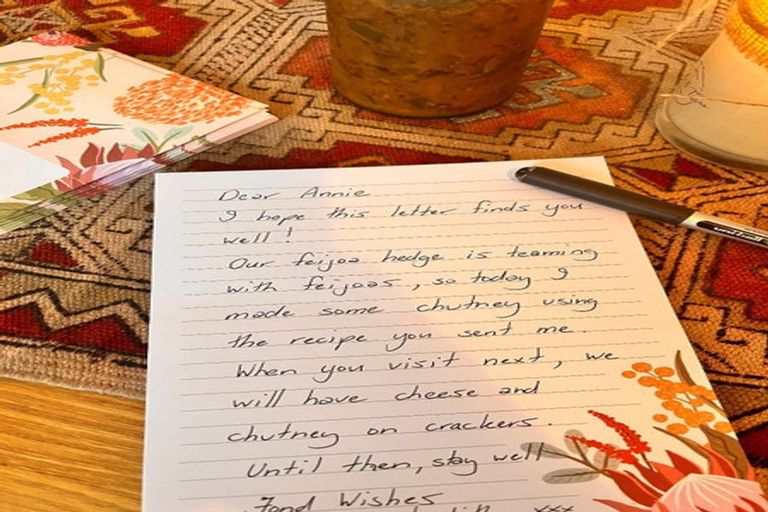 Dear Annie
I hope this letter finds you
well!
Our feijoa hedge is teaming
with feijoas, so today I
made some chutney using
the recipe you sent me.
When you visit next, we
will have cheese and
chutney on crackers.
Until then, stay well
Fond Wishes
xxx